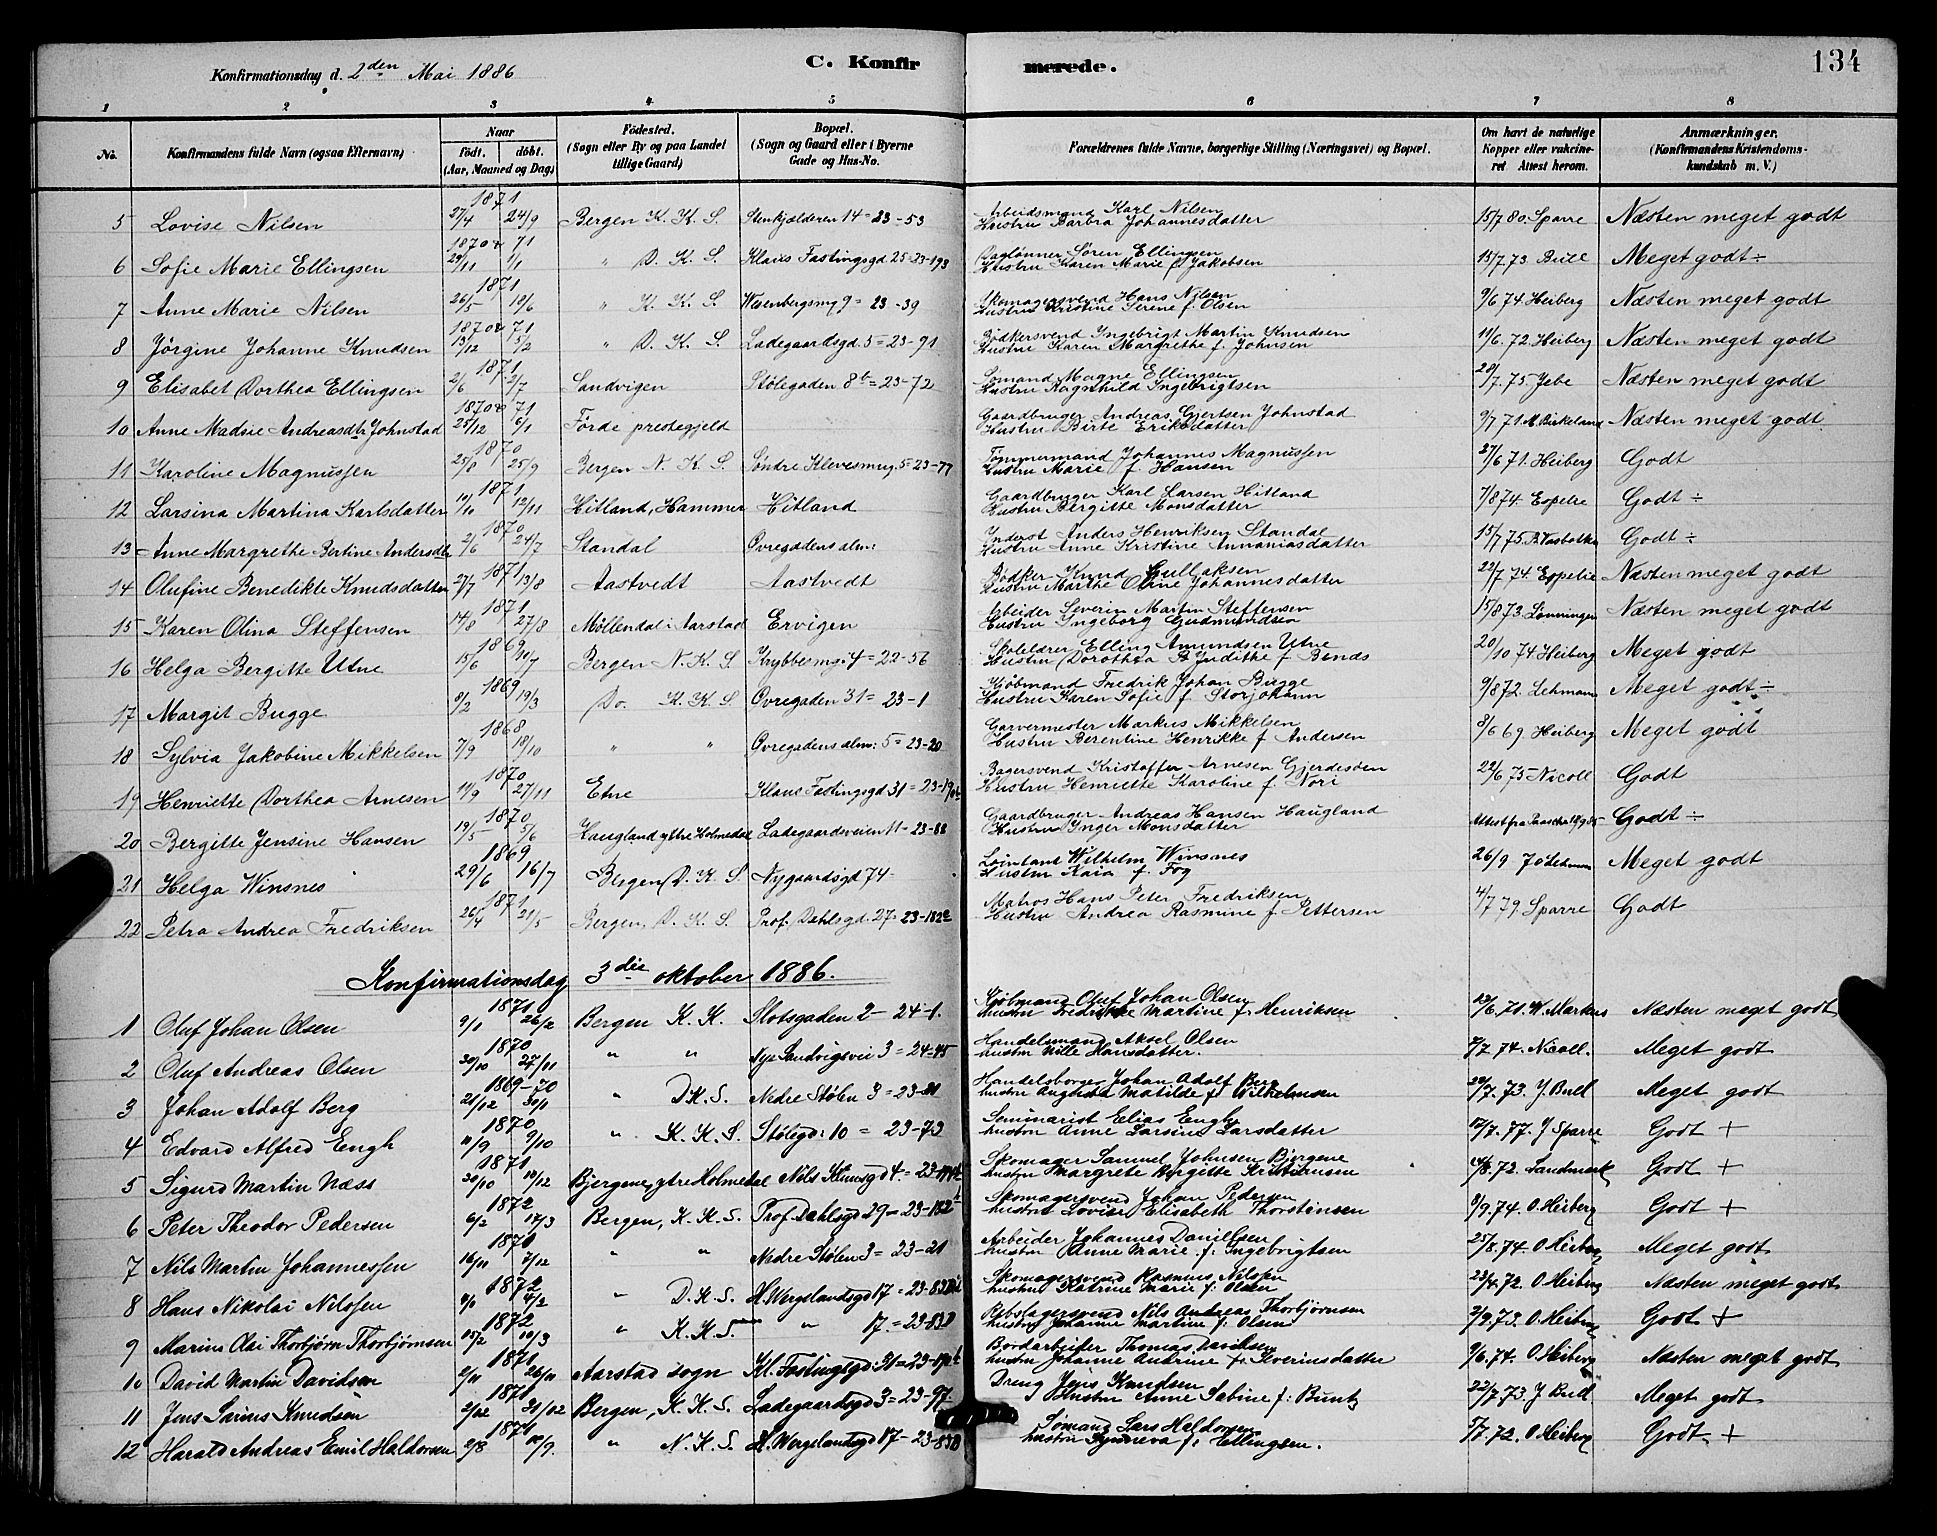 Konfirmationsdag d. 2den Mai 1886
C. Konfirmerede.
134
1 2 3 4 5 6 7 8
No.
Konfirmandens fulde Navn (ogsaa Efternavn)
Naar
født. døbt.
(Aar, Maaned og Dag)
Fødested.
(Sogn eller By og paa Landet tillige Gaard)
Bopæl.
(Sogn og Gaard eller i Byerne Gade og Hus-No.
Forældrenes fulde Navne, borgerlige Stilling (Næringsvei) og Bopæl.
Om havt de naturlige Kopper eller vakcineret Attest herom.
Anmærkninger.
(Konfirmandens Kristendomskundskab m. V.)
5 Lovise Nilsen 1871 27/4 24/9 Bergen K. K. S. Stenkjælderen 14 = 23-53 Arbeidsmand Karl Nilsen Hustru Barbra Johannesdatter 15/7 80. Sparre Næsten meget godt
6 Sofie Marie Ellingsen 1870 & 71 29/11 1/1 " D. K. S. Klaus Fastingsgd 25 23-193 Daglønner Søren Ellingsen Hustru Karen Marie f. Jakobsen 15/7 73 Meget godt ÷
7 Anne Marie Nilsen 1871 26/5 18/6 " K. K. S. 9 = 23-39 Skomagersvend Hans Nilsen Hustru Kristine Serene f. Olsen 9/6 74 Heiberg Næsten meget godt
8 Jörgine Johanne Knudsen 1870 & 71 13/12 5/2 " D. K. S. Ladegaardsgd. 5 = 23-91 Bødkersvend Ingebrigt Martin Knudsen Hustru Karen Margrethe f. Johnsen 11/6. 72. Heiberg Næsten meget godt
9 Elisabet Dorthea Ellingsen 1871 2/6 2/7 Sandvigen Stølegaden 8b = 23-72 Sømand Magne Ellingsen Hustru Ragnhild Ingebrigtsen 28/7. 75. Jebe Næsten meget godt
10 Anne Madsie Andreasdtr Johnstad 1870 & 71 25/12 6/1 Förde prestegjeld Gaardbruger Andreas Gjertsen Johnstad Hustru Birte Eriksdatter 9/7 71. M. Birkeland Næsten meget godt
11 Karoline Magnussen 1870 25/8 25/9 Bergen N. K. S. Søndre Klevesmug. 5 = 23-77 Tømmermand Johannes Magnussen Hustru Marie f. Hansen 27/6 71. Heiberg Godt
12 Larsina Martina Karlsdatter 1871 19/10 12/11 Hitland, Hammer Hitland Gaardbruger Karl Larsen Hitland Hustru Bergitte Monsdatter 7/8 74. Espelie Godt ÷
13 Anne Margrethe Bertine Andersdtr 1870 2/6 24/7 Standal Øvregadens alm: Inderst Anders Henriksen Standal Hustru Anne Kristine Annaniasdatter 15/7 75. Godt ÷
14 Olufine Benedikte Knudsdatter 1871 27/7 13/8 Aastvedt Aastvedt Bødker Knud Gullaksen Hustru Marthe Oline Johannesdatter 22/7 74. Espelie Næsten meget godt
15 Karen Olina Steffensen 1871 14/8 27/8 Møllendal i Aarstad Ervigen Arbeider Severin Martin Steffensen Hustru Ingeborg Gudmundsen 15/8 73. Lønningen Næsten meget godt
16 Helga Bergitte Utne 1869 15/6 11/7 Bergen N. K. S Krybbesmg: 4 = 22-56 Skolelærer Elling Amundsen Utne Hustru Dorothea B. Judithe f. Bends 20/10 74. Heiberg Meget godt
17 Margit Bugge 1869 8/2 19/3 Do. K. K. S Øvregaden 31 = 23-1 Kjøbmand Fredrik Johan Bugge Hustru Karen Sofie f. Storjohann 9/8 72. Lehmann Meget godt ÷
18 Sylvia Jakobine Mikkelsen 1868 7/9 18/10 " " Øvregadens alm: 5 = 23-20 Garvermester Markus Mikkelsen Hustru Berentine Henrikke f. Andersen 8/6 69 Heiberg Meget godt
19 Henriette Dorthea Arnesen 1870 11/9 27/11 Etne Klaus Fastingsgd 31 = Bagersvend Kristoffer Arnesen Gjerdesden Hustru Henriette Karoline f. Nori 22/6 75 Nicoll Godt
20 Bergitte Jensine Hansen 1870 19/5 5/6 Haugland ytre Holmedal Ladegaardsveien 11 = 23-88 Gaardbruger Andreas Hansen Haugland Hustru Inger Monsdatter Attest fra Godt ÷
21 Helga Winsnes 1869 29/6 16/7 Bergen D. K. S Nygaardsgd 74 Løitnant Wilhelm Winsnes Hustru Kaia f. Fog 26/9 70 Lehmann Meget godt
22 Petra Andrea Fredriksen 1871 26/4 21/5 Bergen, D. K. S. Prof. Dahlsgd. 27 = 23-182e Matros Hans Peter Fredriksen Hustru Andrea Rasmine f. Pettersen 4/7 79. Sparre Godt
Konfirmationsdag 3die oktober 1886.
1 Oluf Johan Olsen 1871 9/1 26/2 Bergen K. K. Slotsgaden 2 - 24-1. Kjøbmand Oluf Johan Olsen hustru Fredrikke Martine f. Henriksen 6. 71. W. Markus Næsten meget godt
2 Oluf Andreas Olsen 1870 20/10 27/11 " " Nye Sandvigsvei 3 = 24-45 Handelsmand Aksel Olsen hustru Nille Hansdatter. 7/7 74. Nicoll. Meget godt
3 Johan Adolf Berg 1869-70 21/12 30/1 " D. K. S. Nedre Stølen 3 = 23-21 Handelsborger Johan Adolf Berg hustru Augusta Matilde f. Wilhelmsen 7. 73. J. Bull Meget godt
4 Edvard Alfred Engh 1870 11/9 9/10 " K. K. S. Stølegd: 10 = 23-73 Seminarist Elias Engh hustru Anne Larsine Larsdatter 12/7. 77. J Sparre Godt +
5 Sigurd Martin Næss 1871 30/10 10/12 Bjergene, ytre Holmedal Nils Klimsgd 4. = Skomager Samuel Johnsen Bjergene hustru Margrete Bergitte Kristensen 14/8. 72. Landmark Godt +
6 Peter Theodor Pedersen 1872 6/2 17/3 Bergen, K. K. S. Prof. Dahlsgd 29 = 23-182 Skomagersvend Johan Pedersen hustru Lovise Elisabeth Thorstensen 8/9. 74. O. Heiberg Godt +
7 Nils Martin Johannessen 1871 16/11 7/12 " " Nedre Stølen 3 = 23-21 Arbeider Johannes Danielsen hustru Anne Marie f. Ingebrigtsen 25/8. 74. O Heiberg Meget godt
8 Hans Nikolai Nilssen 1872 9/1 4/2 " D. K. S. H. Wergelandsgd 17 = Skomagersvend Rasmus Nilsen hustru Katrine Marie f. Olsen 23/4. 72. O Heiberg Næsten meget godt
9 Marius Olai Thorbjørn Thorbjørnsen 1872 15/2 10/3 " K. K. S. " 17. = 23-83D Rebslagersvend Nils Andreas Thorbjørnsen hustru Johanne Martine f. Olsen 2/9. 73. O. Heiberg Godt +
10 David Martin Davidsen 1871 2/11 26/11 Aarstad sogn Kl. Fastingsgd 31 = Bordarbeider Thomas Davidsen hustru Johanne Andrine f. Severinsdatter 9/6. 74. O. Heiberg Næsten meget godt
11 Jens Sarius Knudsen 1871 2/12 31/12 Bergen, K. K. S. Ladegaardsgd 3 = 23-97. Dreng Jens Knudsen Hustru Anne Sabine f. Buntz 22/7. 73. J. Bull Meget godt
12 Harald Andreas Emil Haldorsen 1871 9/8 10/9. " N. K. S. H. Wergelandsgd 17 - 23-83D Sømand Lars Haldorsen hustru Synneva f. Ellingsen. 5/7. 72. O Heiberg Godt +